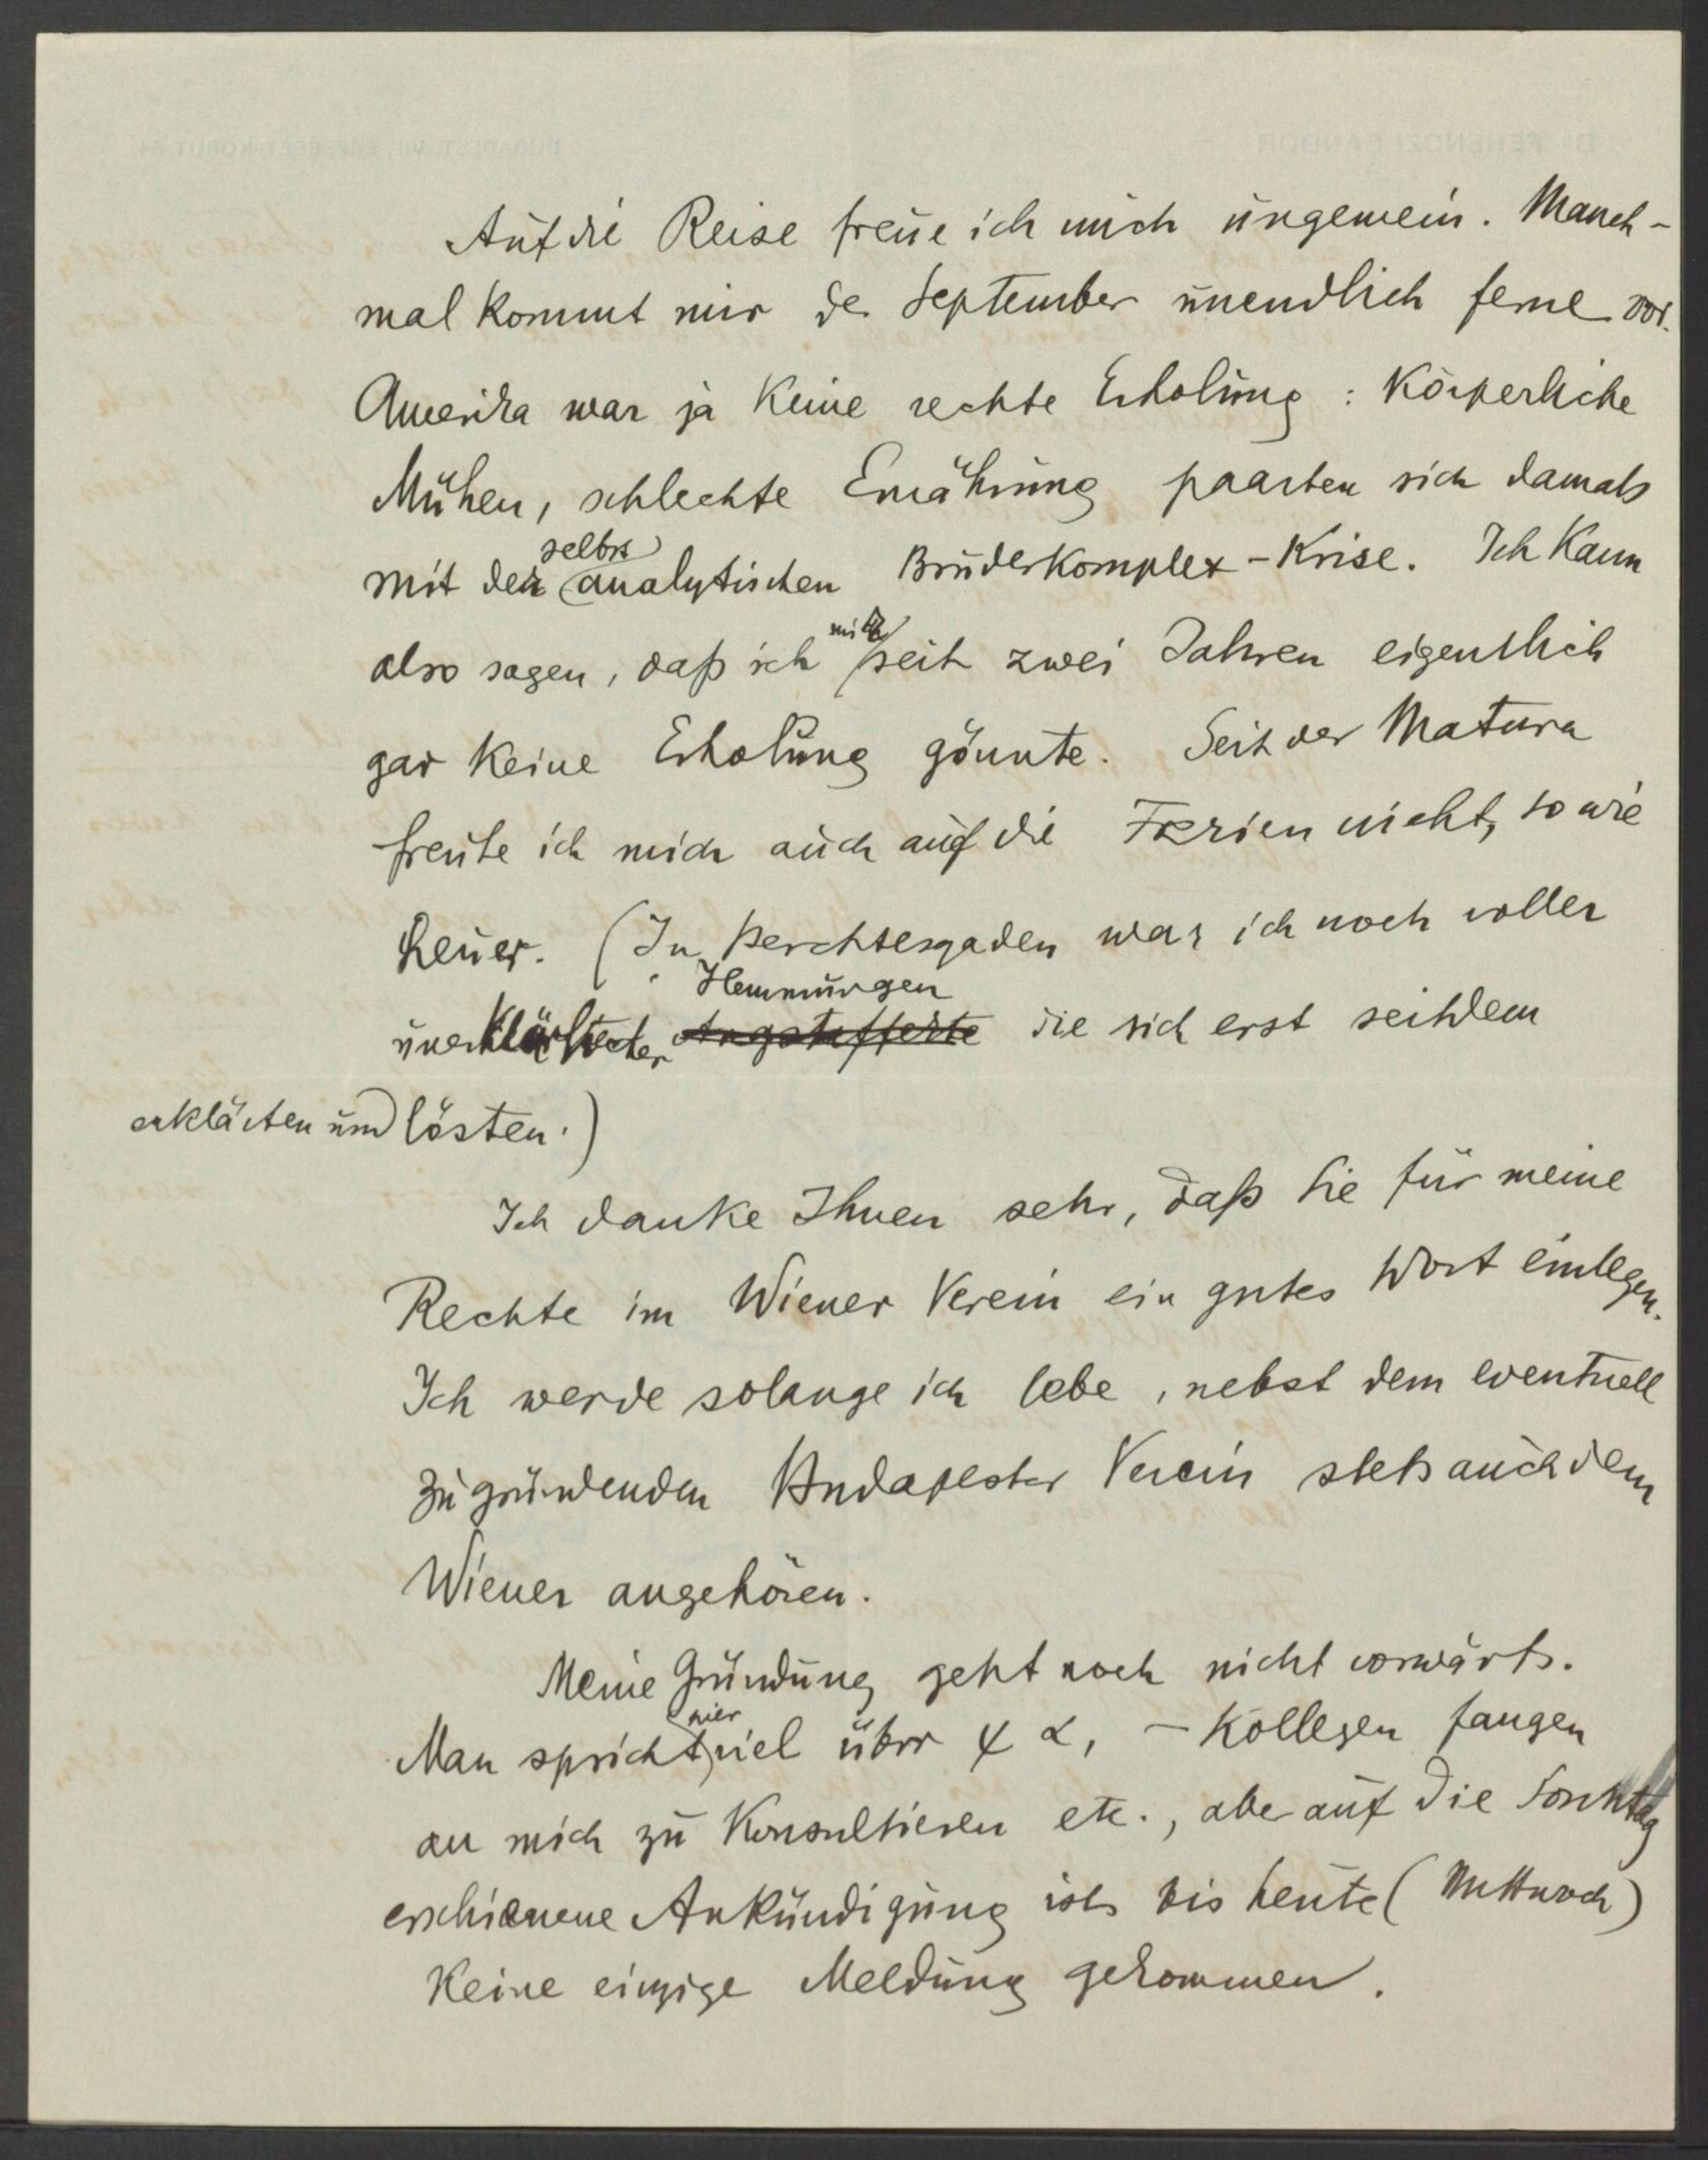 Auf die Reise freue ich mich ungemein. Manch-
mal kommt mir der September unendlich ferne vor.
Amerika war ja keine rechte Erholung : Körperliche
Mühen, schlechte Ernährung paarten sich damals
mit der selbst analytischen Bruderkomplex-Krise. Ich kann
also sagen, daß ich mir seit zwei Jahren eigentlich
gar keine Erholung gönnte. Seit der Matura
freute ich mich auch auf die Ferien nicht, so wie
heuer. (In Berchtesgaden war ich noch voller
Hemmungen
unerklärlicher die sich erst seitdem
erklärten und lösten.)
Ich danke Ihnen sehr, daß Sie für meine
Rechte im Wiener Verein ein gutes Wort einlegen.
Ich werde solange ich lebe, nebst dem eventuell
zu gründenden Budapester Verein stets auch dem
Wiener angehören.
Meine Gründung geht noch nicht vorwärts.
Man spricht hier viel über ψ α, – Kollegen fangen
an mich zu Konsultieren etc., aber auf die Sonntag
erschienene Ankündigung ist bis heute (Mittwoch)
Keine einzige Meldung gekommen.